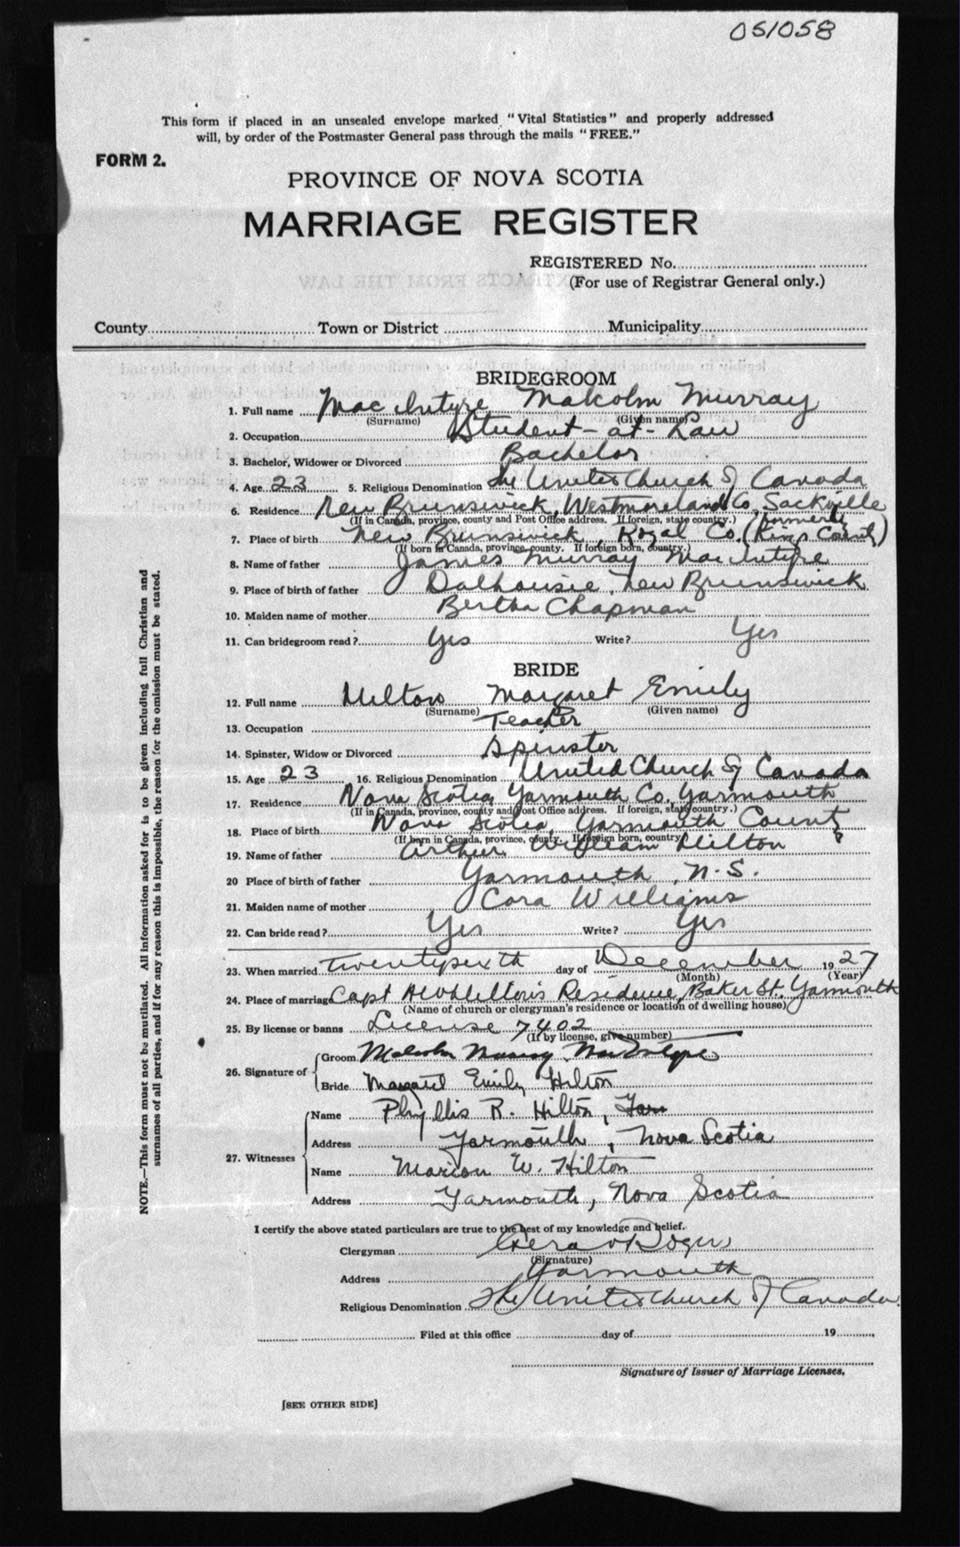 051058
This form if placed in an unsealed envelope marked "Vital Statistics" and properly addressed
will, by order of the Postmaster General pass through the mails "FREE."
FORM 2.
PROVINCE OF NOVA SCOTIA
MARRIAGE REGISTER
REGISTERED No.
(For use of Registrar General only.)
EXTRACTS FROM THE LAW
County Town or District Municipality
BRIDEGROOM
1. Full name Mac Intyre Malcolm Murray
(Surname) (Given name)
2. Occupation Student-at-Law
3. Bachelor, Widower or Divorced Bachelor
4. Age 23 5. Religious Denomination The United Church of Canada
6. Residence New Brunswick, Westmoreland Co, Sackville
(If in Canada, province, county and Post Office address. If foreign, state country.) (formerly
7. Place of birth New Brunswick, Royal Co. (Kings County)
(If born in Canada, province, county. If foreign born, country.)
8. Name of father James Murray MacIntyre
9. Place of birth of father Dalhousie, New Brunswick
10. Maiden name of mother Bertha Chapman
11. Can bridegroom read? Yes Write? Yes
BRIDE
12. Full name Hilton Margaret Emily
(Surname) (Given name)
13. Occupation Teacher
14. Spinster, Widow or Divorced Spinster
15. Age 23 16. Religious Denomination United Church of Canada
17. Residence Nova Scotia, Yarmouth Co. Yarmouth
(If in Canada, province, county and Post Office address. If foreign, state country.)
18. Place of birth Nova Scotia, Yarmouth County
(If born in Canada, province, county. If foreign born, country)
19. Name of father Arthur William Hilton
20 Place of birth of father Yarmouth N.S.
21. Maiden name of mother Cora Williams
22. Can bride read? Yes Write? Yes
23. When married twentysixth day of December 1927
(Month) (Year)
24. Place of marriage Capt A W Hilton's Residence, Baker St. Yarmouth
(Name of church or clergyman's residence or location of dwelling house)
25. By license or banns License 7402
(If by license, give number)
26. Signature of Groom Malcolm Murray MacIntyre
Bride Margaret Emily Hilton
27. Witnesses Name Phyllis R. Hilton, Yar
Address Yarmouth, Nova Scotia
Name Marion W. Hilton
Address Yarmouth, Nova Scotia
I certify the above stated particulars are true to the best of my knowledge and belief.
Clergyman
(Signature)
Address Yarmouth
Religious Denomination The United Church of Canada
Filed at this office day of 19
Signature of Issuer of Marriage Licenses.
[SEE OTHER SIDE]
NOTE.—This form must not be mutilated. All information asked for is to be given including full Christian and
surnames of all parties, and if for any reason this is impossible, the reason for the omission must be stated.